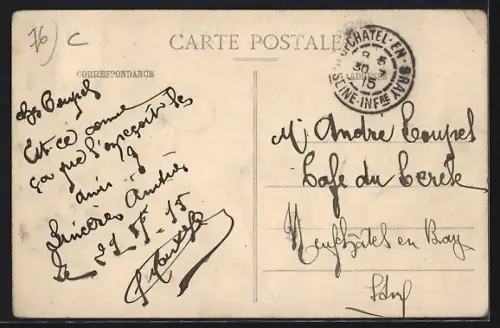 76) C
CARTE POSTALE
CORRESPONDANCE
ADRESSE
NEUFCHATEL-EN-BRAY
30
15
SEINE-INFRE
Est-ce comme
ça que l'on reçoit les
amis ?
Sincères Amitiés
Le 29 15
Mr André Toupel
Café du Cercle
Neufchâtel en Bray